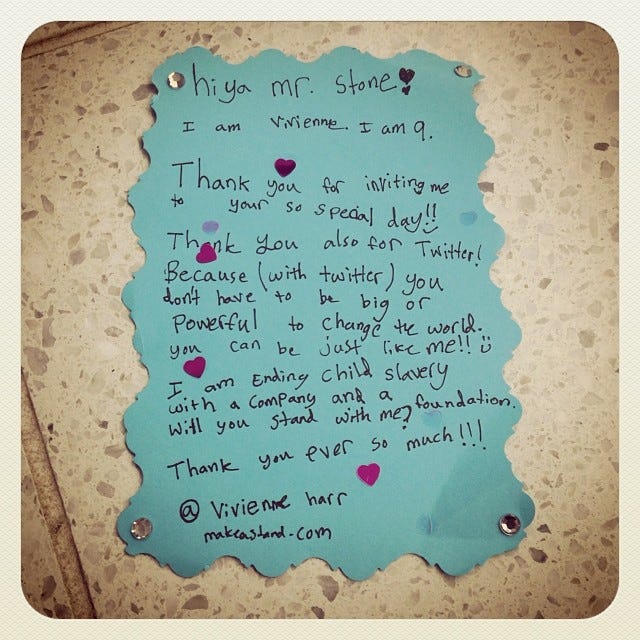 hiya mr. stone!
I am Vivienne. I am 9.
Thank you for inviting me
to your so special day!!
Thank you also for Twitter!
Because (with twitter) you
don't have to be big or
powerful to change the world.
you can be just like me!!
I am ending child slavery
with a company and a foundation.
will you stand with me?
Thank you ever so much!!!
@ Vivienne harr
makeastand.com